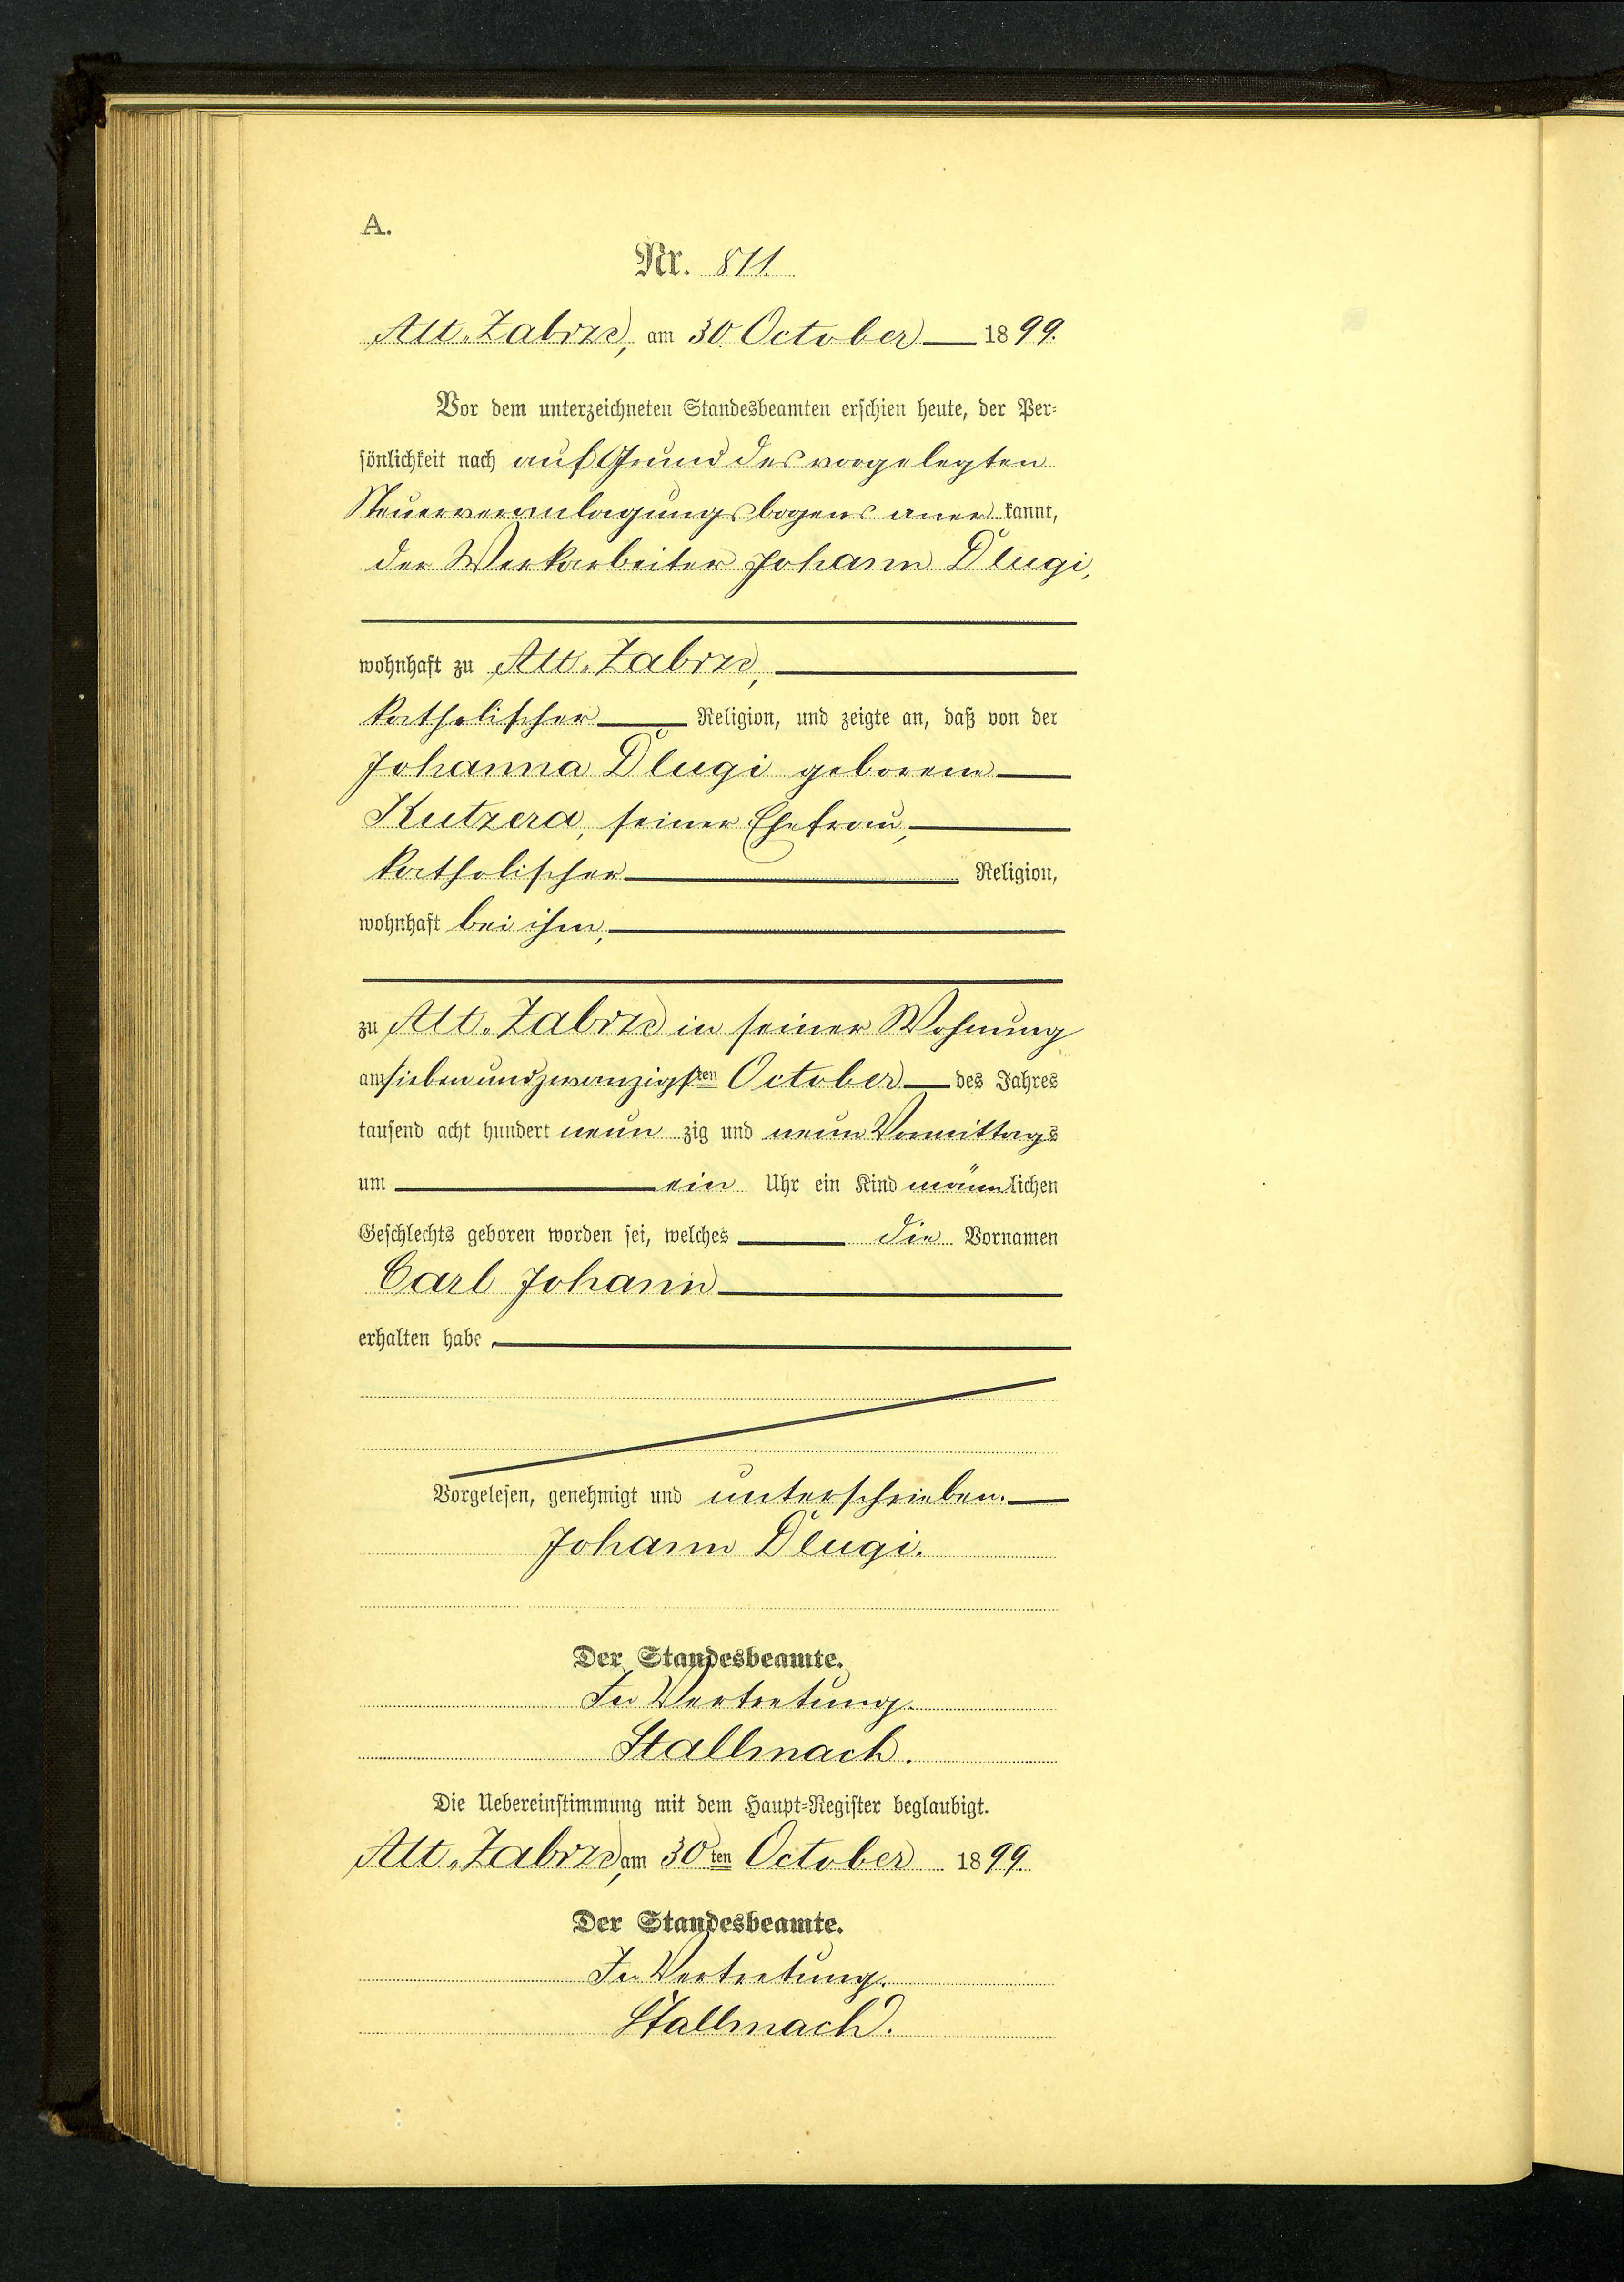 A.
Nr. 811.
Alt-Zabrze, am 30. October 1899.
Vor dem unterzeichneten Standesbeamten erschien heute, der Per-
sönlichkeit nach auf Grund des vorgelegten
Steuerveranlagungsbogens aner kannt,
der Werkarbeiter Johann Dlugi,
wohnhaft zu Alt-Zabrze,
katholischer Religion, und zeigte an, daß von der
Johanna Dlugi geborene
Kutzera, seiner Ehefrau,
katholischer Religion,
wohnhaft bei ihm,
zu Alt-Zabrze in seiner Wohnung
am siebenundzwanzigsten October des Jahres
tausend acht hundert neun zig und neun Vormittags
um ein Uhr ein Kind männlichen
Geschlechts geboren worden sei, welches die Vornamen
Carl Johann
erhalten habe
Vorgelesen, genehmigt und unterschrieben.
Johann Dlugi.
Der Standesbeamte.
In Vertretung.
Stallmach.
Die Uebereinstimmung mit dem Haupt-Register beglaubigt.
Alt-Zabrze, am 30ten October 1899.
Der Standesbeamte.
In Vertretung.
Stallmach.